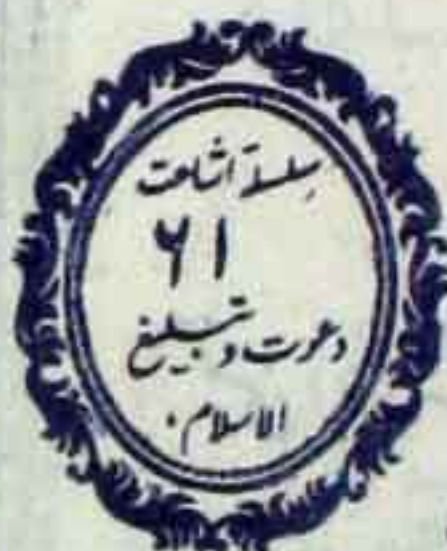 سلسلۂ اشاعت
۶۱
دعوت و تبلیغ
الاسلام ۰